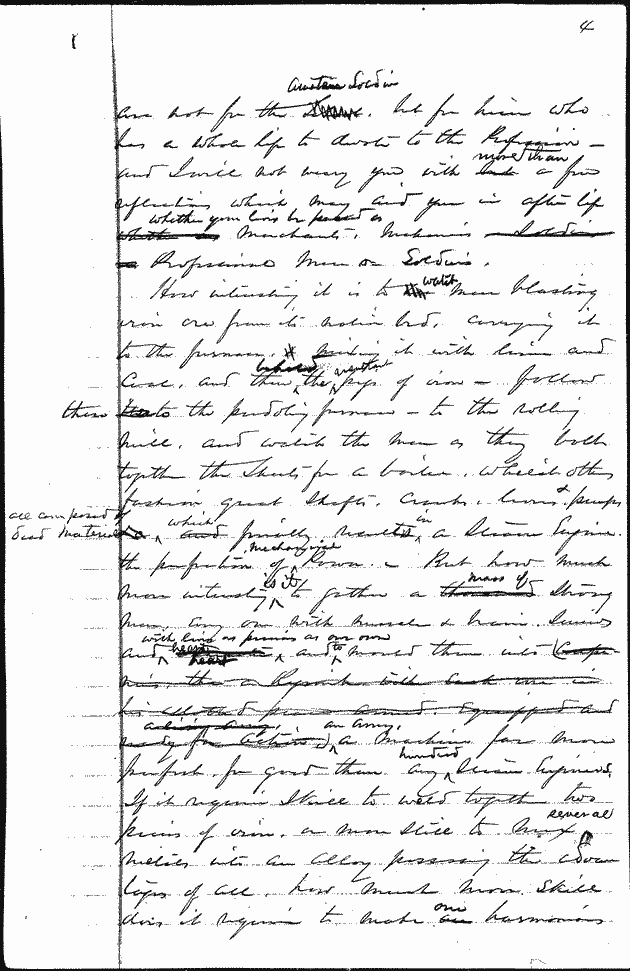 4
amateur Soldier
are not for the but for him who
has a whole life to devote to the Profession –
more than
and I will not weary you with a few
reflections which may aid you in after life
whether your lives be passed as
Merchants, Mechanics
Professional Men or Soldiers.
How interesting it is to watch Men blasting
iron ore from its native bed, carrying it
to the furnace, it with lime and
Coal, and then the resultant pigs of iron – follow
these to the pudling furnace – to the rolling
mill, and watch the men as they bolt
together the Sheets for a boiler, whilst others
fashion great Shafts, Cranks, levers & pumps
all composed of
dead material which finally results in a Steam Engine.
the perfection of mechanical Power. – But how much
more interesting is it to gather a mass of strong
men, every one with muscle & brain, sinews
with lives as precious as our own
and heart, and to mould them into
an army,
a machine far more
perfect for good than any hundred Steam Engines.
If it requires Skill to weld together two
pieces of iron, or more Skill to mix several
metals into an alloy possessing the advan
tages of all, how much more Skill
does it require to make one harmonious